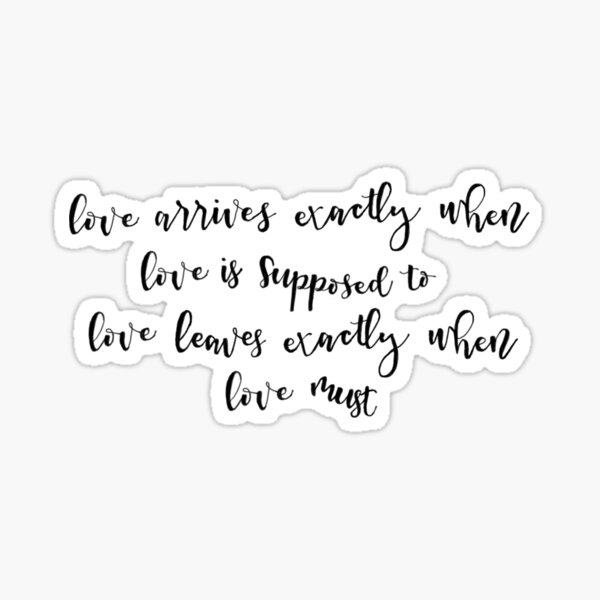 love arrives exactly when
love is supposed to
love leaves exactly when
love must